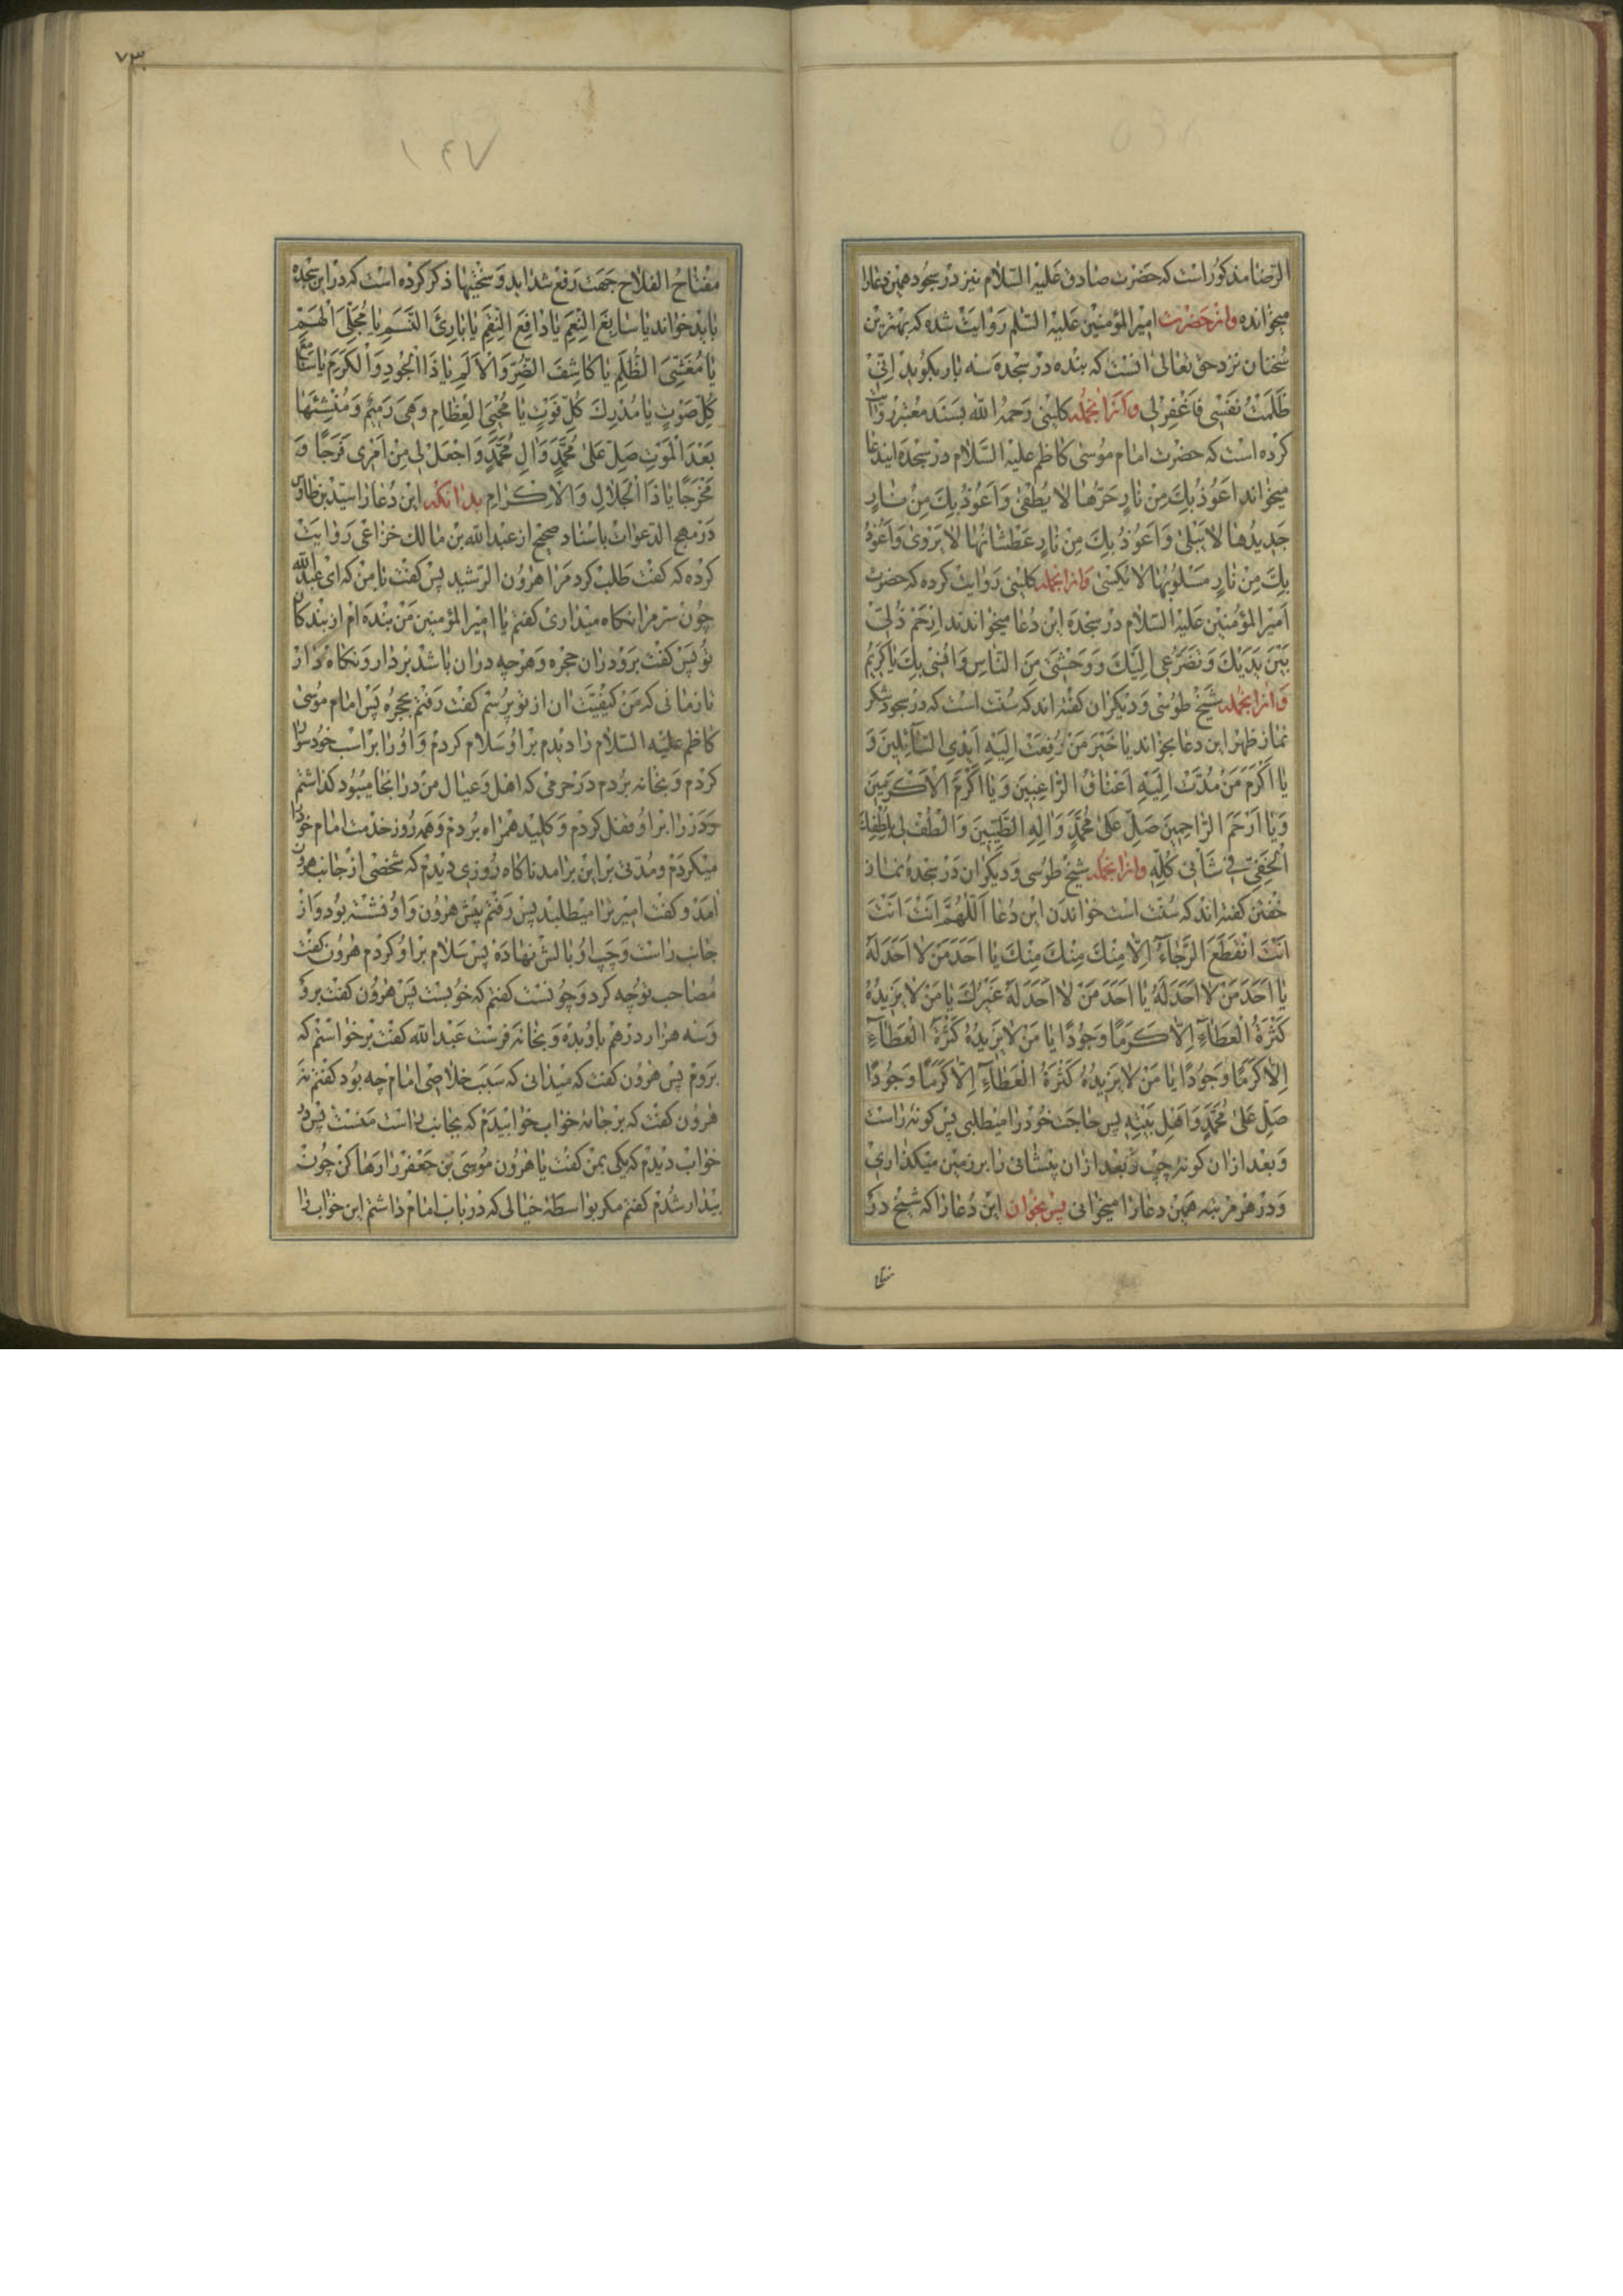 الرضا مذکور است که حضرت صادق علیه السلام نیز در سجود همین دعا را
میخوانده واز حضرت امیر المؤمنین علیه السلم روایت شده که بهترین
سخنان نزد حق تعالی انست که بنده در سجده سه بار بکوید اِنّی
ظَلَمْتُ نَفْسِی فَاغْفِرْلِی وازانجمله کلینی رحمه الله بسند معتبر روایت
کرده است که حضرت امام موسی کاظم علیه السلام در سجده ایندعا
میخواند اَعُوذُ بِكَ مِنْ نارٍ حَرُّها لا یُطْفیٰ وَاَعُوذُ بِكَ مِنْ نارٍ
جَدیدُها لا یَبْلیٰ وَاَعُوذُ بِكَ مِنْ نارٍ عَطْشانُها لا یَرْویٰ وَاَعُوذُ
بِكَ مِنْ نارٍ مَسْلُوبُها لا یُکْسیٰ وازانجمله کلینی روایت کرده که حضرت
امیر المؤمنین علیه السلام در سجده این دعا میخواندند اِرْحَمْ ذُلّی
بَیْنَ یَدَیْكَ وَتَضَرُّعی اِلَیْكَ وَوَحْشَتی مِنَ النّاسِ وَاُنْسی بِكَ یا کَرِیمُ
وازانجمله شیخ طوسی ودیکران کفته اند که سنت است که در سجود شکر
نماز ظهر این دعا بخواند یا خَیْرَ مَنْ رُفِعَتْ اِلَیْهِ اَیْدِی السّآئِلینَ وَ
یا اَکْرَمَ مَنْ مُدَّتْ اِلَیْهِ اَعْناقُ الرّاغِبینَ وَیا اَکْرَمَ الْاَکْرَمینَ
وَیا اَرْحَمَ الرّاحِمینَ صَلِّ عَلیٰ مُحَمَّدٍ وَالِهِ الطَّیِّبینَ وَالْطُفْ لی بِلُطْفِكَ
الْخَفِیِّ فی شَأْنی کُلِّهِ وازانجمله شیخ طوسی ودیکران در سجده نماز
خفتن کفته اند که سنت است خواندن این دعا اَللّهُمَّ اَنْتَ اَنْتَ
اَنْتَ انْقَطَعَ الرَّجآءُ اِلّا مِنْكَ مِنْكَ مِنْكَ یا اَحَدَ مَنْ لا اَحَدَ لَهُ
یا اَحَدَ مَنْ لا اَحَدَ لَهُ یا اَحَدَ مَنْ لا اَحَدَ لَهُ غَیْرُكَ یا مَنْ لا یَزیدُهُ
کَثْرَةُ الْعَطآءِ اِلّا کَرَمًا وَجُودًا یا مَنْ لا یَزیدُهُ کَثْرَةُ الْعَطآءِ
اِلّا کَرَمًا وَجُودًا یا مَنْ لا یَزیدُهُ کَثْرَةُ الْعَطآءِ اِلّا کَرَمًا وَجُودًا
صَلِّ عَلیٰ مُحَمَّدٍ وَاَهْلِ بَیْتِهِ پس حاجت خود را میطلبی پس کونه راست
وبعد ازان کونه چپ وبعد ازان پیشانی را بر زمین میکذاری
ودر هر مرتبه همین دعا را میخوانی پس بخوان این دعا را که شیخ در
مفتا
۷۳
۱۴۷
مفتاح الفلاح جهت رفع شداید وسختیها ذکر کرده است که در این سجده
باید خواند یا سابِغَ النِّعَمِ یا دافِعَ النِّقَمِ یا بارِئَ النَّسَمِ یا مُجَلِّیَ الْهِمَمِ
یا مُغَشِّیَ الظُّلَمِ یا کاشِفَ الضُّرِّ وَالْاَلَمِ یا ذَا الْجُودِ وَالْکَرَمِ یا سامِعَ
کُلِّ صَوْتٍ یا مُدْرِكَ کُلِّ فَوْتٍ یا مُحْیِیَ الْعِظامِ وَهِیَ رَمیمٌ وَمُنْشِئَها
بَعْدَ الْمَوْتِ صَلِّ عَلیٰ مُحَمَّدٍ وَالِ مُحَمَّدٍ وَاجْعَلْ لی مِنْ اَمْری فَرَجًا وَ
مَخْرَجًا یا ذَا الْجَلالِ وَالْاِکْرامِ بدانکه این دعا را سید بن طاوس
در مهج الدعوات باسناد صحیح از عبد الله بن مالك خزاعی روایت
کرده که کفت طلب کرد مرا هرون الرشید پس کفت با من که ای عبد الله
چون سر مرا نکاه میداری کفتم یا امیر المؤمنین من بنده ام از بندکان
تو پس کفت برو در ان حجره وهر چه در ان باشد بردار ونکاه دار
تا زمانی که من کیفیت ان از تو پرسم کفت رفتم بحجره پس امام موسی
کاظم علیه السلام را دیدم بر او سلام کردم واورا بر اسب خود سوار
کردم وبخانه بردم در حرمی که اهل وعیال من در انجا میبود کذاشتم
ودر را بر او قفل کردم وکلید همراه بردم وهر روز خدمت امام خود را
میکردم ومدتی بر این بر امد ناکاه روزی دیدم که شخصی از جانب هرون
امد وکفت امیر ترا میطلبد پس رفتم پیش هرون واو نشسته بود واز
جانب راست وچپ او بالش نهاده پس سلام بر او کردم هرون کفت
مصاحب تو چه کرد وچونست کفتم که خوبست پس هرون کفت برو
وسه هزار درهم باو بده وبخانه فرست عبد الله کفت برخواستم که
بروم پس هرون کفت که میدانی که سبب خلاصی امام چه بود کفتم نه
هرون کفت که بر جانه خواب خوابیدم که بجانب راست منست پس در
خواب دیدم که یکی بمن کفت یا هرون موسی بن جعفر را رها کن چون
بیدار شدم کفتم مکر بواسطه خیالی که در باب امام داشتم این خواب را